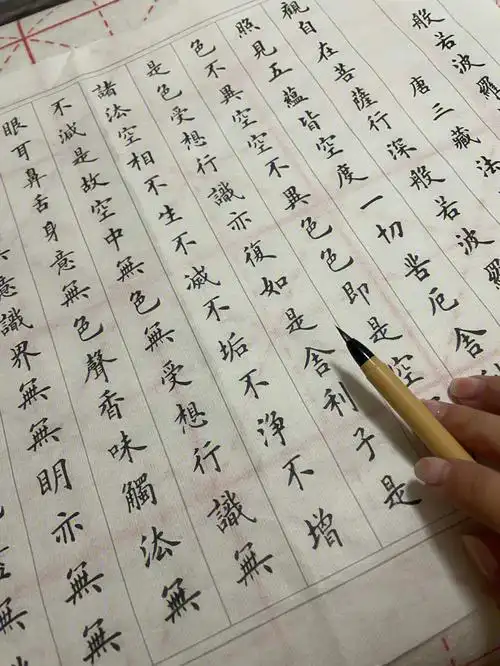 般若波羅
唐三藏法
觀自在菩薩行深般若波羅
照見五蘊皆空度一切苦厄舍
色不異空空不異色色即是空
是色受想行識亦復如是舍利子是
諸法空相不生不滅不垢不淨不增
不減是故空中無色無受想行識無
眼耳鼻舌身意無色聲香味觸法無
意識界無無明亦無無